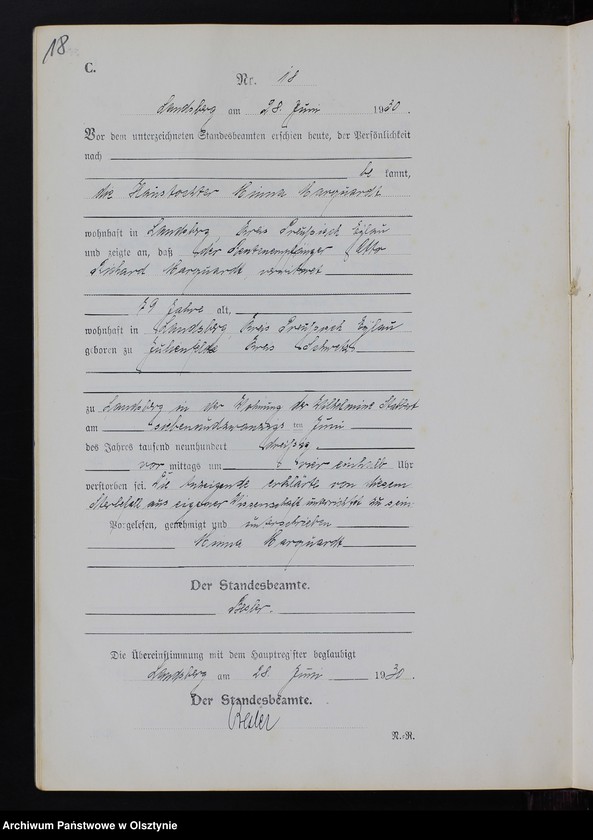 18
C.
Nr. 18
Landsberg am 28. Juni 1930.
Vor dem unterzeichneten Standesbeamten erschien heute, der Persönlichkeit
nach
be kannt,
die Haustochter Minna Marquardt
wohnhaft in Landsberg, Kreis Preußisch Eylau
und zeigte an, daß der Rentenempfänger Otto
Richard Marquardt verwitwet
79 Jahre alt,
wohnhaft in Landsberg, Kreis Preußisch Eylau
geboren zu Kreis
zu Landsberg in der Wohnung der Wilhelmine
am siebenundzwanzigs ten Juni
des Jahres tausend neunhundert dreißig
vor mittags um vier einhalb Uhr
verstorben sei. Die Anzeigende erklärte von diesem
Sterbefall aus eigener Wissenschaft unterrichtet zu sein.
Vorgelesen, genehmigt und unterschrieben
Minna Marquardt
Der Standesbeamte.
Die Übereinstimmung mit dem Hauptregister beglaubigt
Landsberg am 28. Juni 1930.
Der Standesbeamte.
N.-R.
Archiwum Państwowe w Olsztynie